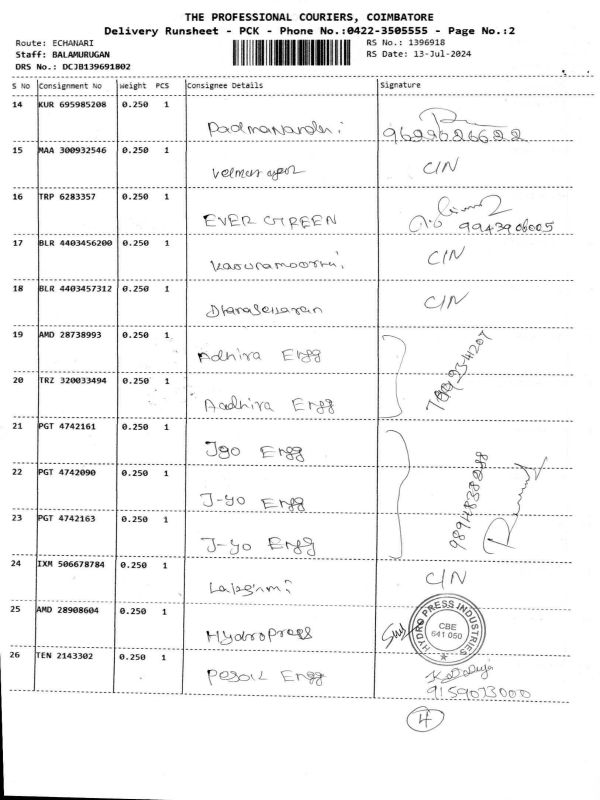 THE PROFESSIONAL COURIERS, COIMBATORE
Delivery Runsheet - PCK - Phone No.:0422-3505555 - Page No.:2
Route: ECHANARI RS No.: 1396918
Staff: BALAMURUGAN RS Date: 13-Jul-2024
DRS No.: DCJB139691802
S No Consignment No Weight PCS Consignee Details Signature
14 KUR 695985208 0.250 1
9629026622
15 MAA 300932546 0.250 1
CIN
16 TRP 6283357 0.250 1
EVER GREEN 9943906005
17 BLR 4403456200 0.250 1
CIN
18 BLR 4403457312 0.250 1
Dhanasekaran CIN
19 AMD 28738993 0.250 1
Adhira Engg
20 TRZ 320033494 0.250 1
Aadhira Engg
21 PGT 4742161 0.250 1
Jgo Engg
22 PGT 4742090 0.250 1
J-yo Engg
23 PGT 4742163 0.250 1
J-yo Engg
9894838288
24 IXM 506678784 0.250 1
CIN
25 AMD 28908604 0.250 1
HydroPress
HYDRO PRESS INDUSTRIES
CBE
641 050
26 TEN 2143302 0.250 1
Engg
9159073000
4